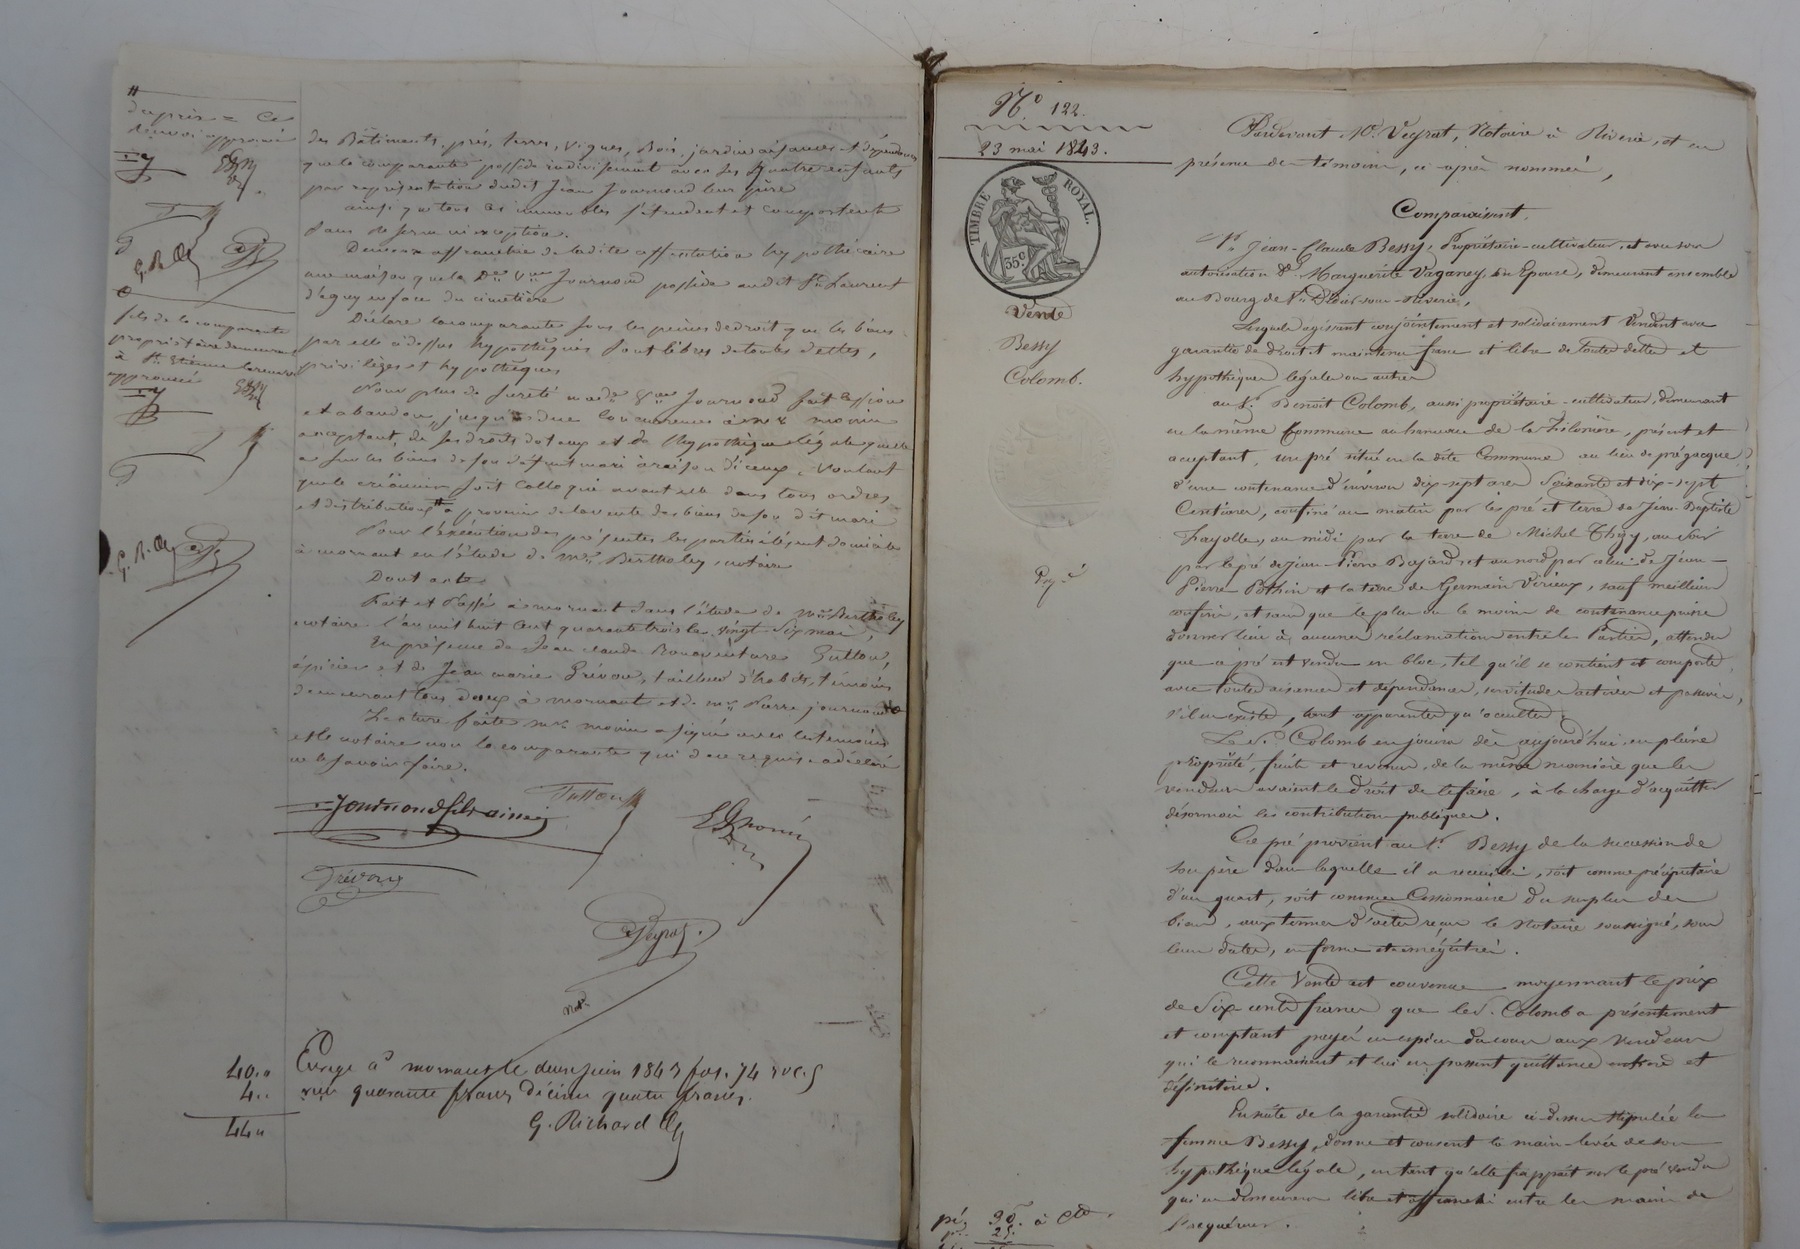 #
d'après = Ce
renvoi approuvé
G. R.
fils de la comparante
propriétaire demeurant
à St. Etienne
approuvé
G. R.
des Bâtiments, prés, terres, vignes, Bois, jardin aisances et dépendances
que la comparante possède indivisément avec ses quatre enfants
par représentation dudit Jean Journoud leur père
ainsi que tous ces immeubles s'étendent et comportent
sans réserve ni exception.
Demeure affranchie de ladite affectation hypothécaire
une maison que la De. Vve. Journoud possède audit St. Laurent
d'agny en face du cimetière
Déclare la comparante sous les peines de droit que les biens
par elle ci dessus hypothéqués sont libres de toutes dettes,
privilèges et hypothèques
Pour plus de sureté Vve Journoud fait cession
et abandon jusqu'à due concurrence à
acceptant, de ses droits dotaux et de l'hypothèque légale qu'elle
a sur les biens de son défunt mari à raison d'iceux, Voulant
que le créancier soit colloqué avant elle dans tous ordres
et distributions # à provenir de la vente des biens de son dit mari
Pour l'exécution des présentes les parties élisent domicile
à mornant en l'étude de Me Bertholey, notaire
Dont acte
Fait et Passé à mornant dans l'étude de Me Bertholey
notaire. l'an mil huit cent quarante trois le vingt-six mai
En présence de Jean claude Bonaventure Tutton,
épicier et de Jean marie Trévoux, tailleur d'habits, témoins
demeurant tous deux à mornant et de Mr Pierre journoud
Lecture faite a signé avec les témoins
et le notaire non la comparante qui de ce requise a déclaré
ne le savoir faire.
Journoud fils ainé
Tutton
Trévoux
Veyrat
Not.
Enregé à mornant le deux juin 1843 fol. 74
reçu quarante francs décime quatre francs.
G. Richard
40..
4..
44"
No. 122.
23 mai 1843.
TIMBRE ROYAL.
35c
Vente
Bessy
Colomb.
Pardevant Me. Veyrat, Notaire à Riverie, et en
présence de témoins, ci-après nommés,
Comparaissent.
Sr. Jean-Claude Bessy, Propriétaire-cultivateur, et avec son
autorisation De. Marguerite Vaganey, son Epouse, demeurant ensemble
au Bourg de St. Didier-sous-Riverie,
Lesquels agissant conjointement et solidairement Vendent avec
garantie de droit et maintenu franc et libre de toutes dettes et
hypothèques légales ou autres
au Sr. Benoît Colomb, aussi propriétaire-cultivateur, demeurant
en la même Commune au hameau de la Filonière, présent et
acceptant, un pré situé en la dite Commune au lieu de prégacque,
d'une contenance d'environ dix-sept ares Soixante et dix-sept
Centiares, confiné au matin par les pré et terre de Jean-Baptiste
Fayolle, au midi par la terre de Michel Thizy, au soir
par le pré de Jean-Pierre Bajard et au nord par celui de Jean-
Pierre Pothin et la terre de Germain Virieux, sauf meilleurs
confins, et sans que le plus ou le moins de contenance puisse
donner lieu à aucune réclamation entre les Parties, attendu
que ce pré est vendu en bloc, tel qu'il se contient et comporte
avec toutes aisances et dépendances, servitudes actives et passives,
s'il en existe, tant apparentes qu'occultes.
Le Sr. Colomb en jouira dès aujourd'hui, en pleine
propriété, fruits et revenus, de la même manière que les
vendeurs avaient le droit de le faire, à la charge d'acquitter
désormais les contributions publiques.
Ce pré provient au Sr. Bessy de la succession de
son père dans laquelle il a recueilli, soit comme préciputaire
d'un quart, soit comme Cessionnaire du surplus des
biens, aux termes d'actes reçus le Notaire soussigné, sous
leurs dates, en forme et enregistrés.
Cette Vente est convenue moyennant le prix
de Six-cents francs que le Sr. Colomb a présentement
et comptant payés en espèces du cours aux vendeurs
qui le reconnaissent et lui en passent quittance entière et
définitive.
Ensuite de la garantie solidaire ci-dessus stipulée la
femme Bessy, donne et consent la main-levée de son
hypothèque légale, en tant qu'elle frappait sur le pré vendu
qui en demeurera libre et affranchi entre les mains de
l'acquéreur.